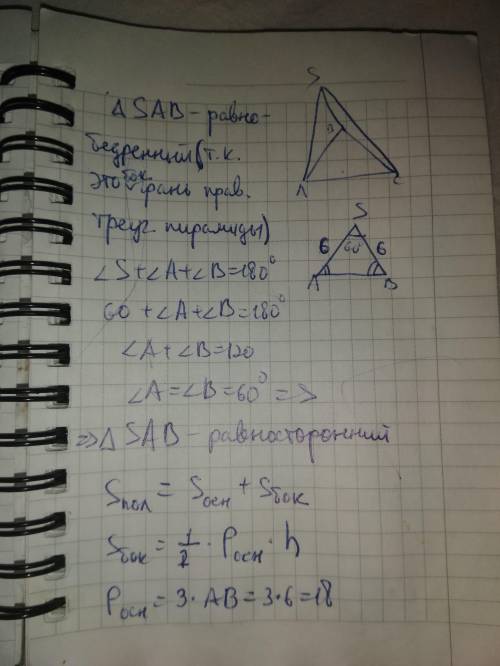 △SAB - равно-
бедренний (т.к.
это бок. грань прав.
треуг. пирамиды)
∠S+∠A+∠B=180°
60+∠A+∠B=180°
∠A+∠B=120
∠A=∠B=60° =>
=> △SAB - равносторонний
Sпол = Sосн + Sбок
Sбок = 1/2 · Pосн · h
Pосн = 3 · AB = 3 · 6 = 18
S
B
A
C
S
6 60° 6
A B